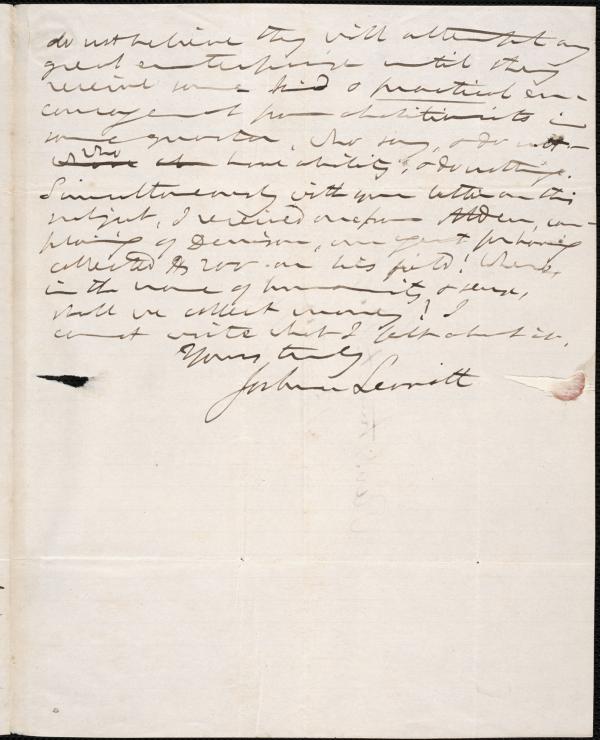 do not believe they will attempt any
great enterprise until they
receive some kind of practical en-
couragement from abolitionists in
some quarter, who say, & do not-
who have ability, & do nothing.
Simultaneously with your letter on this
subject, I received one from Alden, com-
plaining of Denison, our agent for having
collected $200 in his field! Where,
in the name of humanity & sense,
shall we collect money? I
cannot write what I felt about it.
Yours truly
Joshua Leavitt